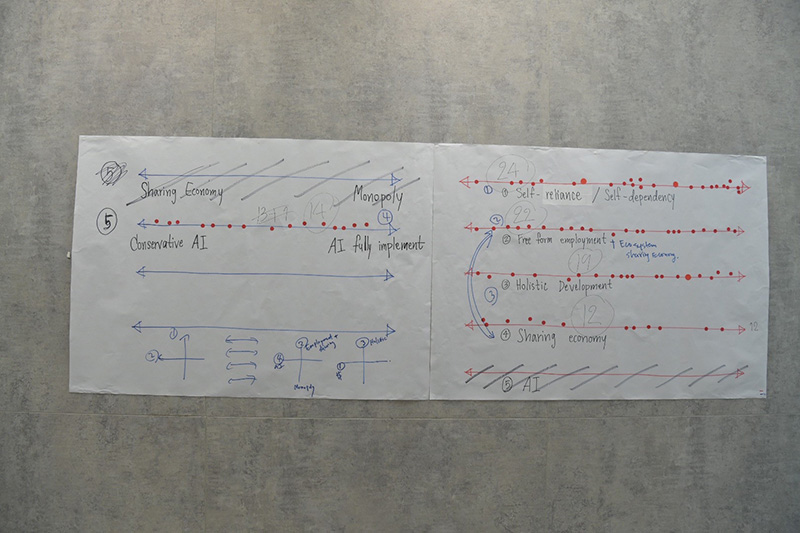 5
Sharing Economy Monopoly
5 14 4
Conservative AI AI fully implement
1
2
2 Employment +
3 Holistic
Monopoly
24
1 ① Self-reliance / Self-dependency
2 22
② Free form employment ↑ Ecosystem
sharing Economy.
19
3 ③ Holistic Development
12
④ Sharing economy
⑤ AI